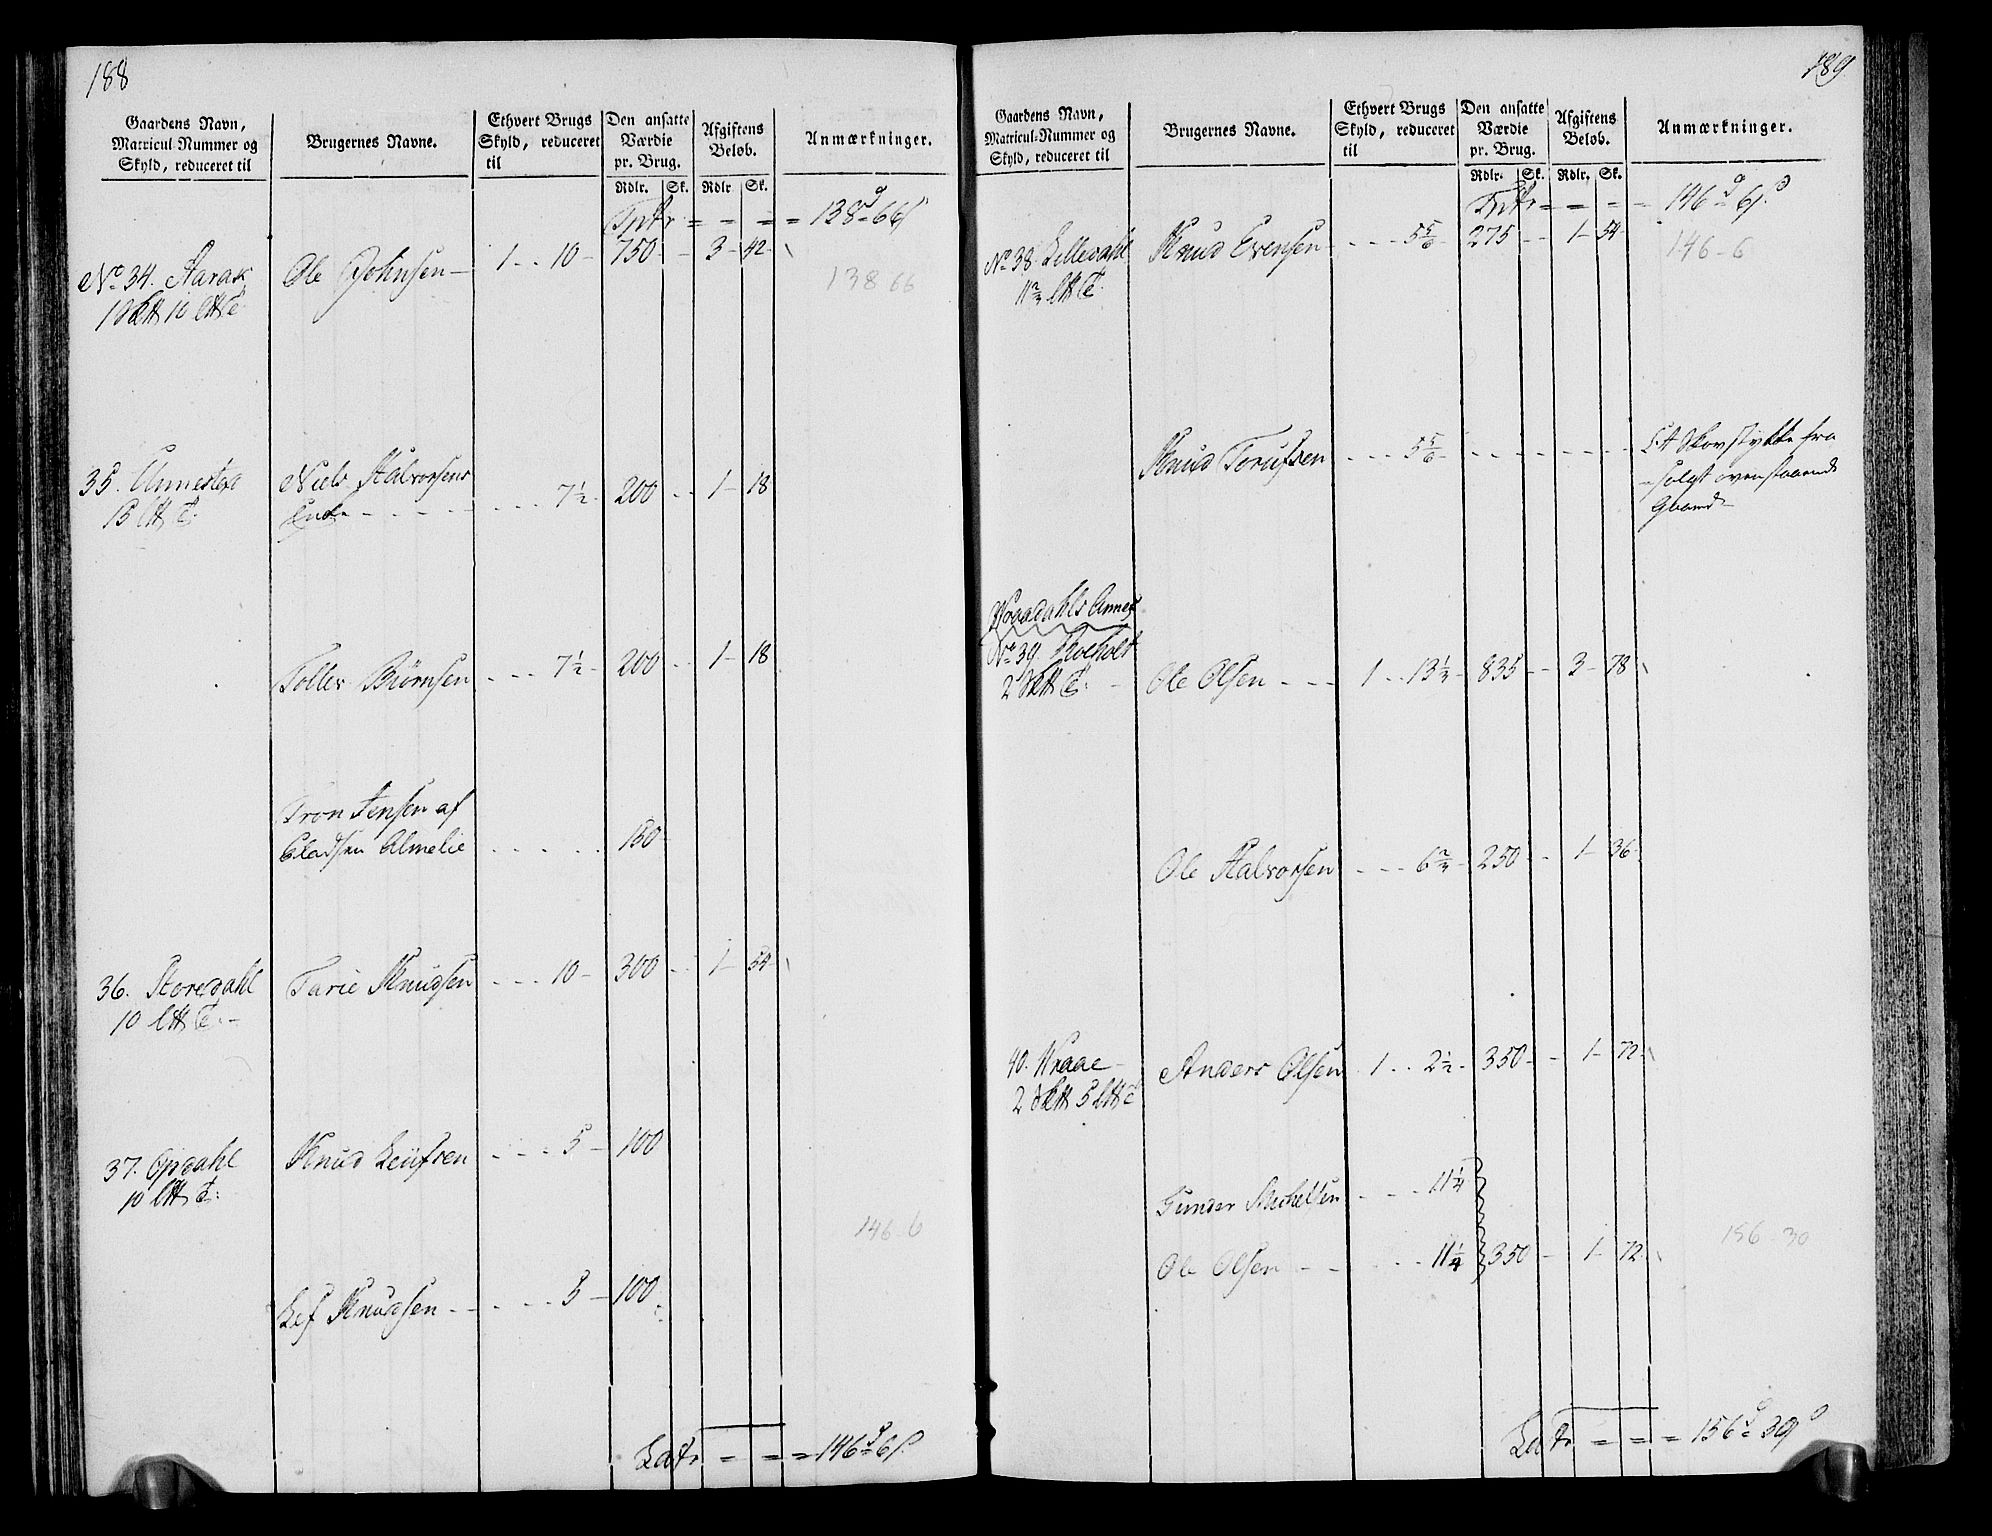 188
Gaardens Navn,
Matricul-Nummer og
Skyld, reduceret til
Brugernes Navne.
Ethvert Brugs
Skyld, reduceret
til
Den ansatte
Værdie
pr. Brug.
Rdlr. Sk.
Afgiftens
Beløb.
Rdlr Sk.
Anmærkninger.
= = = = 138 d 66 s
No 34. Aarak Ole Johnsen 1 .. 10 - 750 - - 3 - 42
138 66
35. Niels Halvorsens
15 . . . 7½ - 200 - - 1 - 18
Tollev Biörnsen . . . 7½ - 200 - - 1 - 18
Tron Jensen af
Pladsen . . . . . 150
36. Storedahl Tarie Knudsen . . . 10 - 300 - - 1 - 54
10
37. Opdahl Knud . . . 5 - 100
10
146-6
Lef Knudsen . . . 5 - 100
Latr = = = 146 d 6 s
189
Gaardens Navn,
Matricul-Nummer og
Skyld, reduceret til
Brugernes Navne.
Ethvert Brugs
Skyld, reduceret
til
Den ansatte
Værdie
pr. Brug.
Rdlr. Sk.
Afgiftens
Beløb.
Rdlr. Sk.
Anmærkninger.
= = = = 146 d 6 s
No 38 Lilledahl Knud Evensen . . . 5 5/6 275 - - 1 - 54
11⅔
146-6
Knud . . . 5 5/6 - - - - - - Et Skovstykke fra
solgt ovenstaaende
Gaard
No 39. Ole Olsen - - - 1 . . 13⅓ - 835 - - 3 - 78
2
Ole Halvorsen . . . 6⅔ - 250 - - 1 - 36
40. Kraae Anders Olsen 1 . . 2½ - 350 - - 1 - 72
2 5
Gunder Michelsen . . . 11¼
Ole Olsen - - . . . 11¼ 350 - 1 - 72
156-30
Latr = = = 156 d 30 s